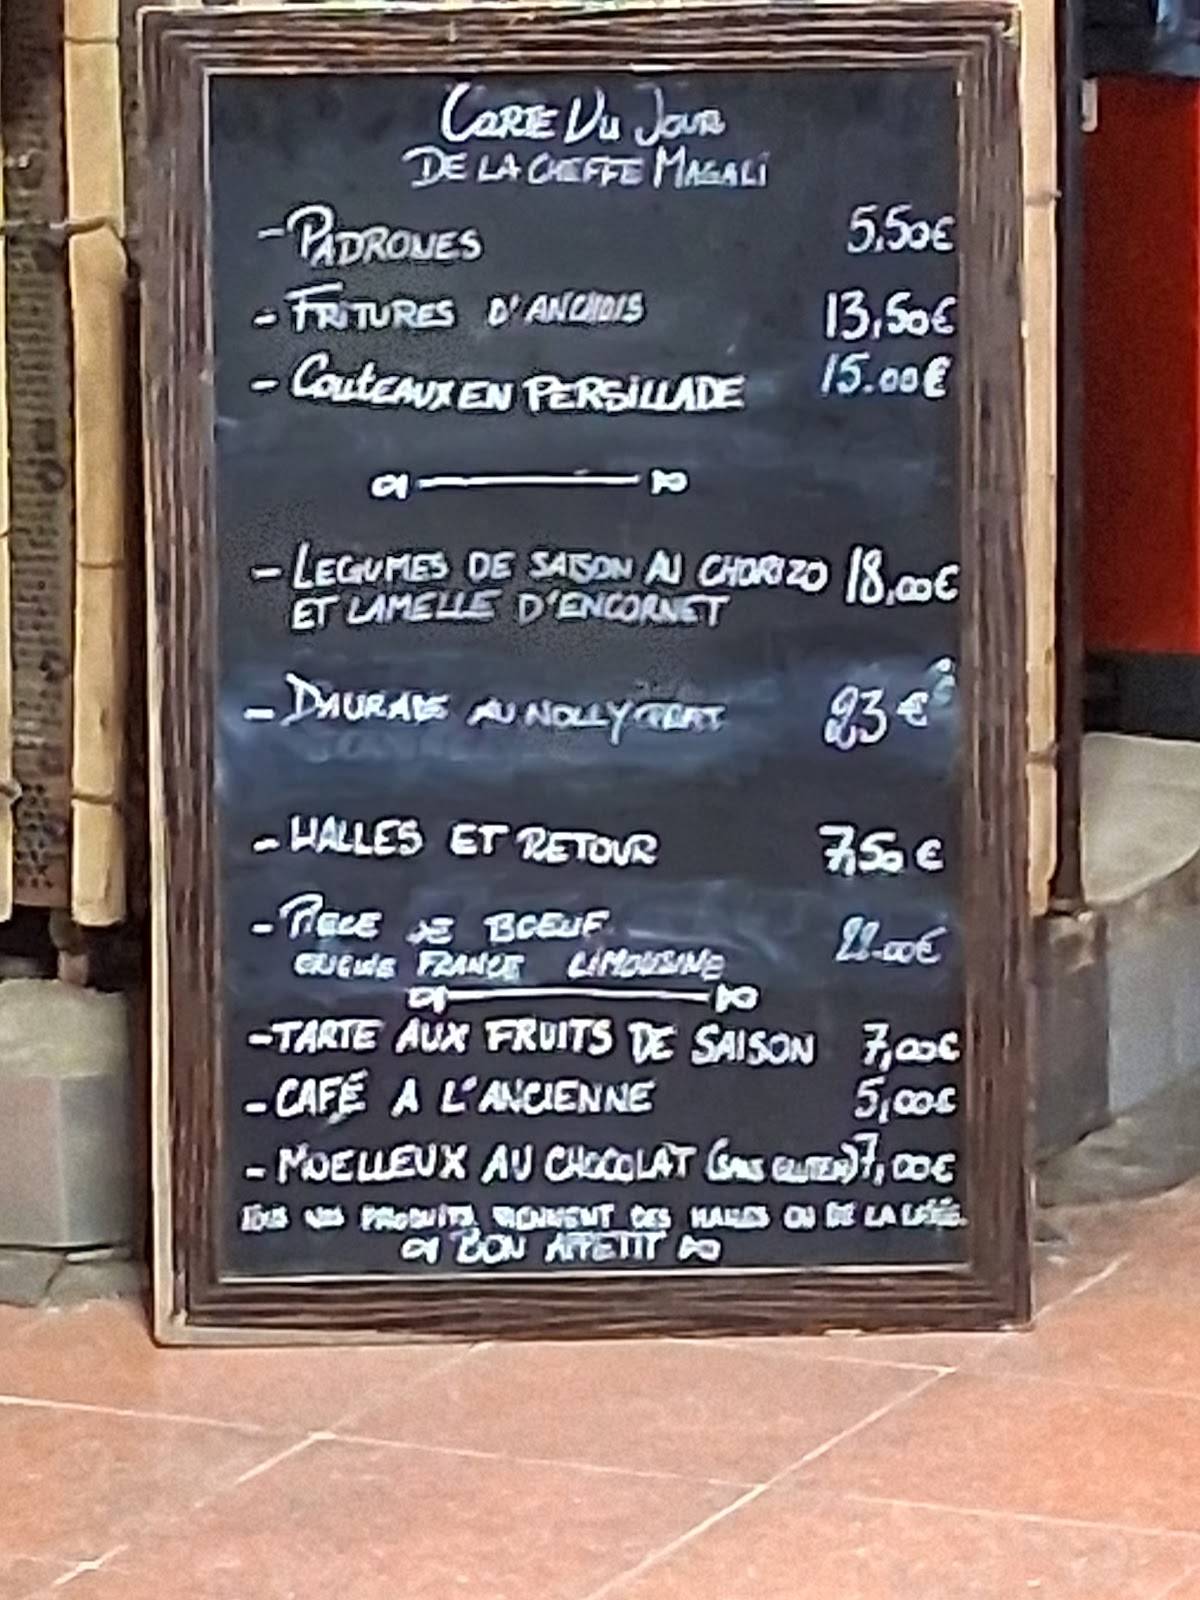 Carte Du Jour
DE LA CHEFFE MAGALI
- PADRONES 5,50€
- FRITURES D'ANCHOIS 13,50€
- COUTEAUX EN PERSILLADE 15.00€
- LEGUMES DE SAISON AU CHORIZO 18,00€
ET LAMELLE D'ENCORNET
- DAURADE AU NOLLY PRAT 23€
- HALLES ET RETOUR 7,50€
- PIECE DE BOEUF 22.00€
ORIGINE FRANCE LIMOUSINE
- TARTE AUX FRUITS DE SAISON 7,00€
- CAFÉ A L'ANCIENNE 5,00€
- MOELLEUX AU CHOCOLAT (SANS GLUTEN) 7,00€
TOUS NOS PRODUITS VIENNENT DES HALLES OU DE LA
BON APPETIT